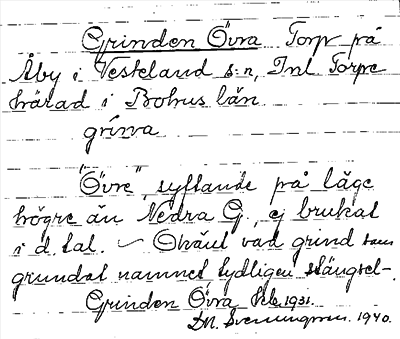 Grinden Övra Torp på
Åby i Vesteland s:n, Inl. Torpe
härad i Bohus län
grinna
"Övre" syftande på läge
högre än Nedra G., ej brukat
i d. tal. – Okänt vad grind som
grundat namnet tydligen stängsel-
Grinden Övra Jeb. 1931.
D.N. Svenungsson. 1940.